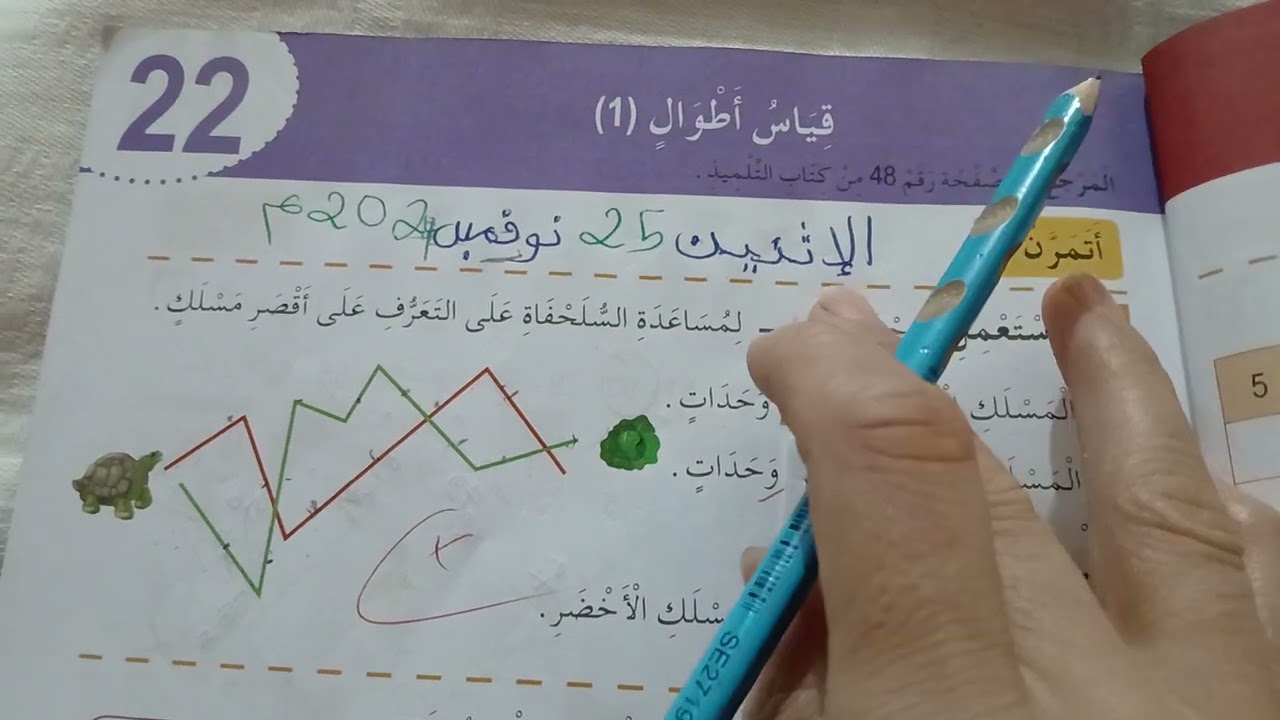 22
قِيَاسُ أَطْوَالٍ (1)
صَفْحَة رَقَمْ 48 مِنْ كِتَابِ التِّلْمِيذِ .
الإثنين 25 نوفمبر 2024م
أَتَمَرَّن
لِمُسَاعَدَةِ السُّلَحْفَاةِ عَلَى التَعَرُّفِ عَلَى أَقْصَرِ مَسْلَكٍ .
الْمَسْلَكِ وَحَدَاتٍ .
وَحَدَاتٍ .
الْأَخْضَرِ .
5
SE2719